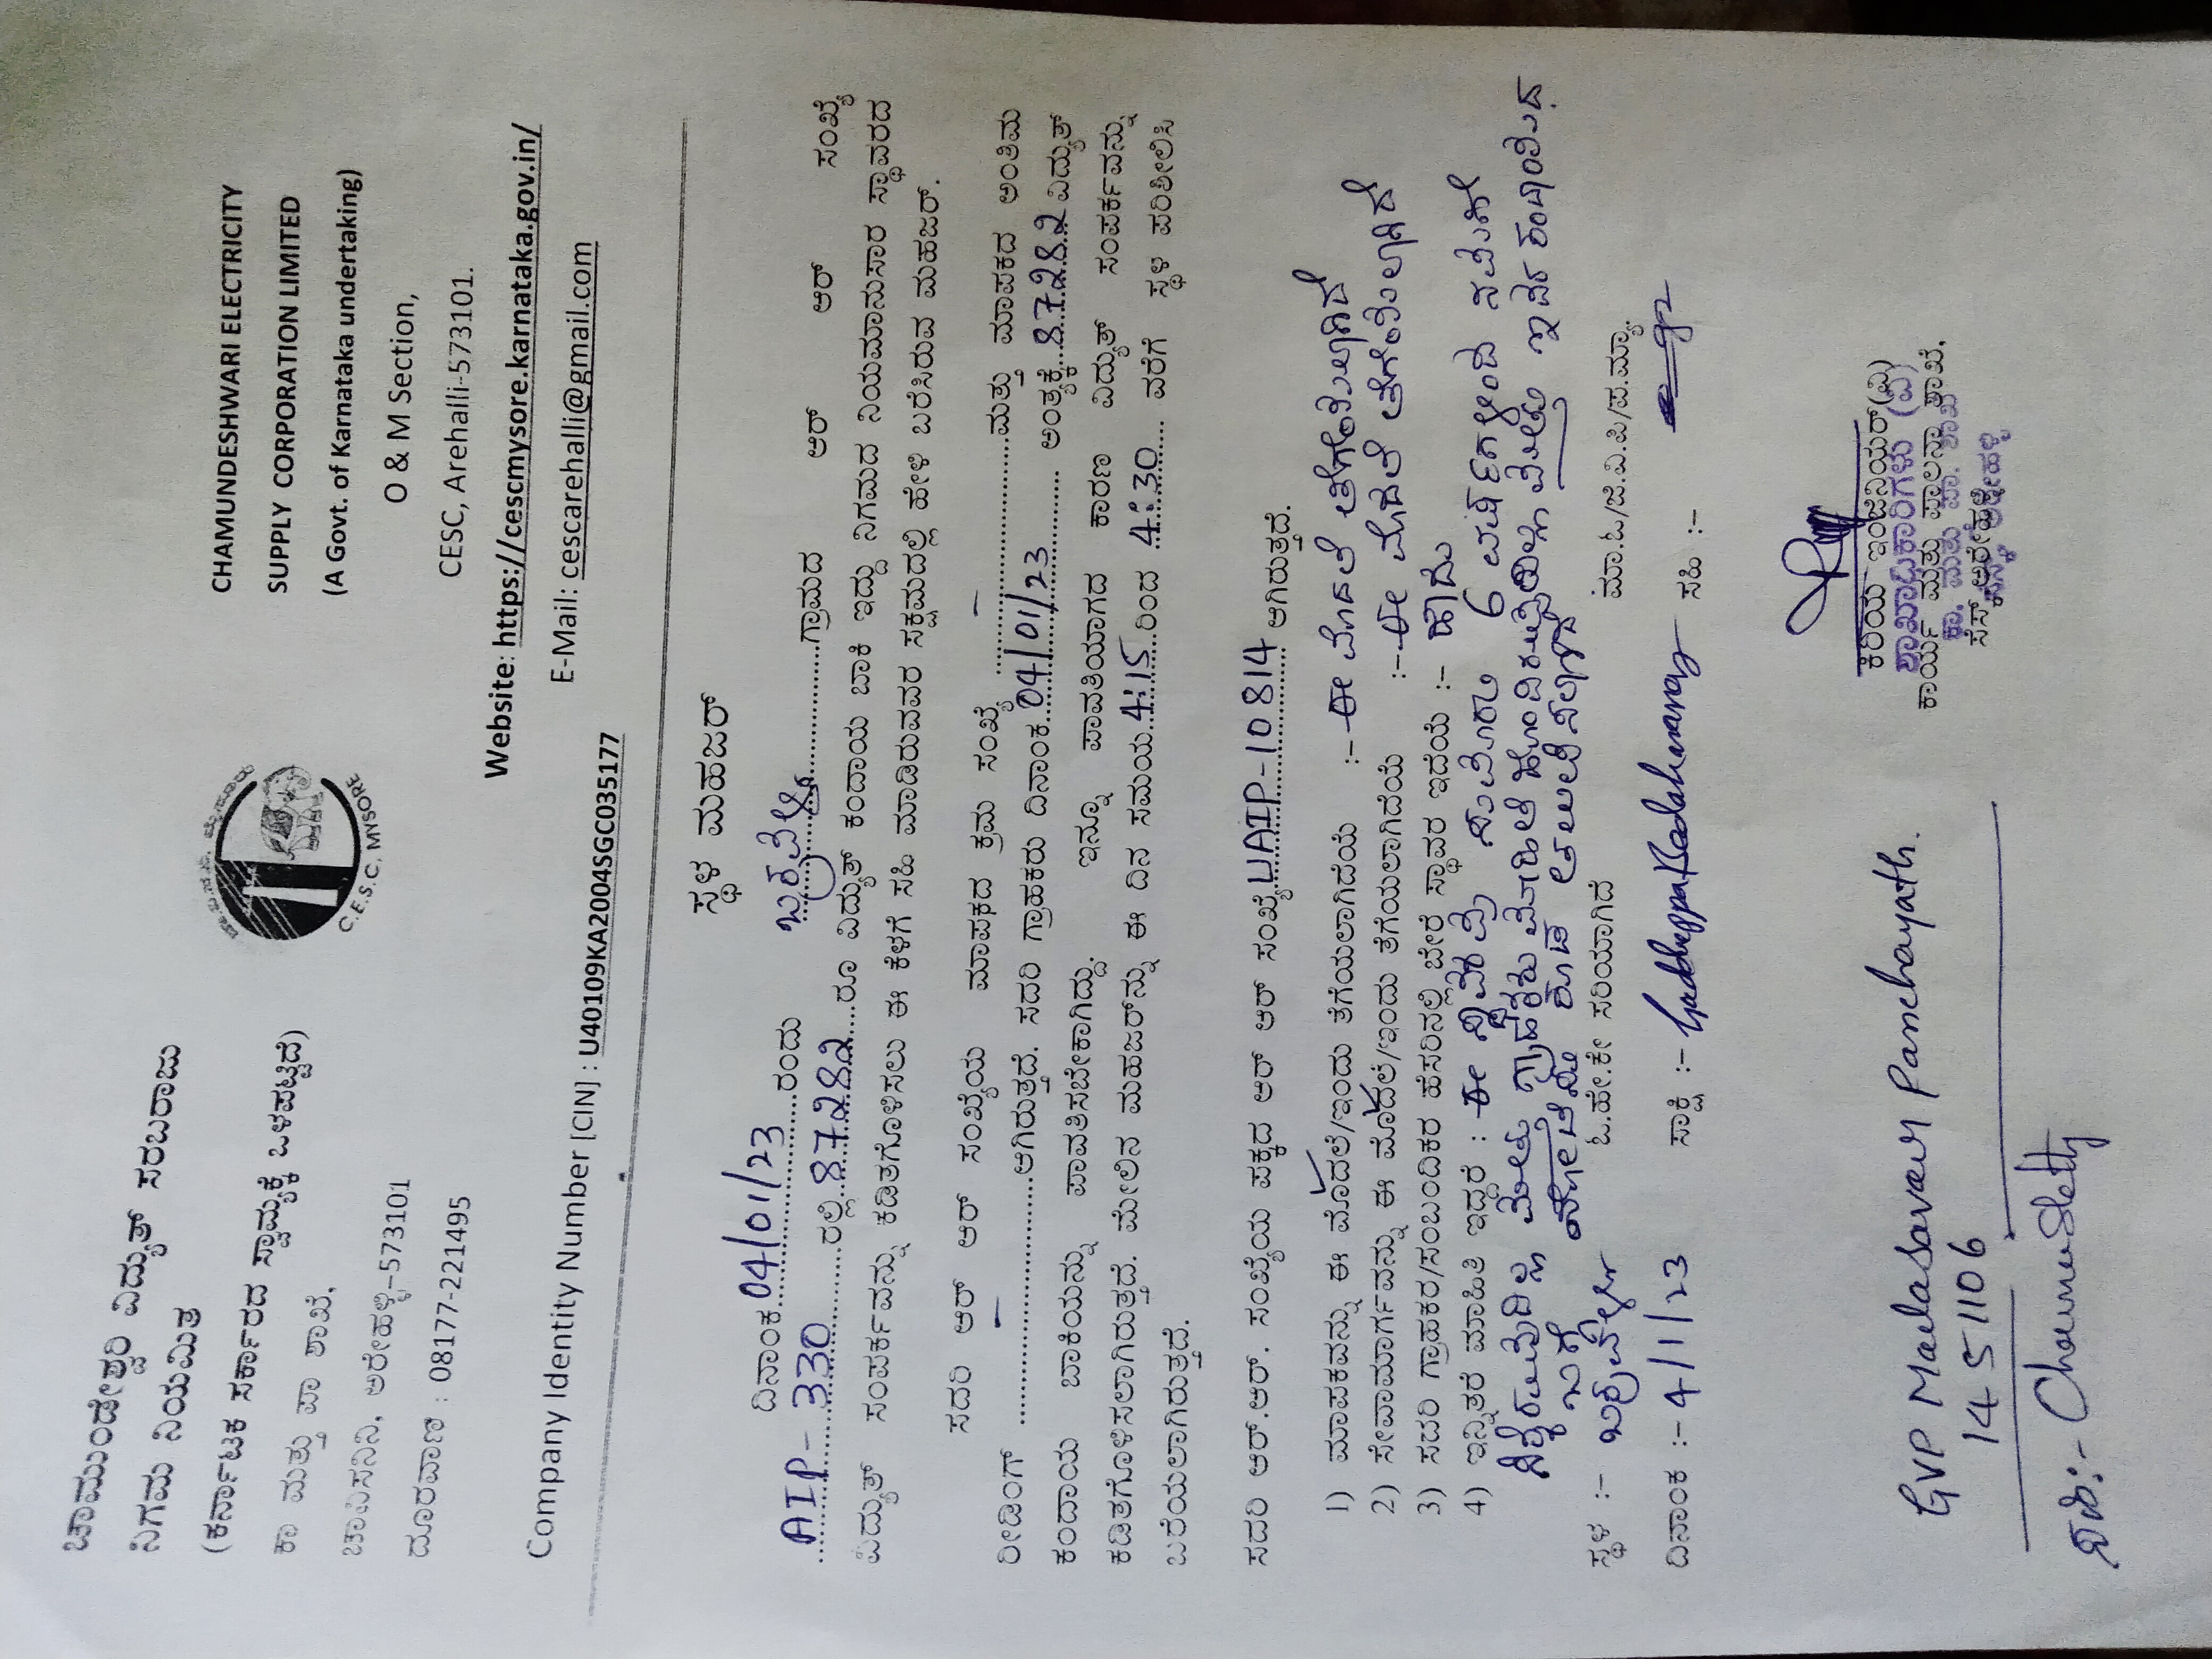 ಚಾಮುಂಡೇಶ್ವರಿ ವಿದ್ಯುತ್ ಸರಬರಾಜು
ನಿಗಮ ನಿಯಮಿತ
(ಕರ್ನಾಟಕ ಸರ್ಕಾರದ ಸ್ವಾಮ್ಯಕ್ಕೆ ಒಳಪಟ್ಟಿದೆ)
ಕಾ ಮತ್ತು ಪಾ ಶಾಖೆ,
ಚಾವಿಸನಿನಿ, ಅರೇಹಳ್ಳಿ-573101
ದೂರವಾಣಿ : 08177-221495
C.E.S.C, MYSORE
CHAMUNDESHWARI ELECTRICITY
SUPPLY CORPORATION LIMITED
(A Govt. of Karnataka undertaking)
O & M Section,
CESC, Arehalli-573101.
Website: https://cescmysore.karnataka.gov.in/
E-Mail: cescarehalli@gmail.com
Company Identity Number [CIN] : U40109KA2004SGC035177
ಸ್ಥಳ ಮಹಜರ್
ದಿನಾಂಕ 04/01/23 ರಂದು ಗ್ರಾಮದ ಆರ್ ಆರ್ ಸಂಖ್ಯೆ
AIP-330 ರಲ್ಲಿ 87282 ರೂ ವಿದ್ಯುತ್ ಕಂದಾಯ ಬಾಕಿ ಇದ್ದು ನಿಗಮದ ನಿಯಮಾನುಸಾರ ಸ್ಥಾವರದ
ವಿದ್ಯುತ್ ಸಂಪರ್ಕವನ್ನು ಕಡಿತಗೊಳಿಸಲು ಈ ಕೆಳಗೆ ಸಹಿ ಮಾಡಿರುವವರ ಸಕ್ಷಮದಲ್ಲಿ ಹೇಳಿ ಬರೆಸಿರುವ ಮಹಜರ್.
ಸದರಿ ಆರ್ ಆರ್ ಸಂಖ್ಯೆಯ ಮಾಪಕದ ಕ್ರಮ ಸಂಖ್ಯೆ - ಮತ್ತು ಮಾಪಕದ ಅಂತಿಮ
ರೀಡಿಂಗ್ - ಆಗಿರುತ್ತದೆ. ಸದರಿ ಗ್ರಾಹಕರು ದಿನಾಂಕ 04/01/23 ಅಂತ್ಯಕ್ಕೆ 87282 ವಿದ್ಯುತ್
ಕಂದಾಯ ಬಾಕಿಯನ್ನು ಪಾವತಿಸಬೇಕಾಗಿದ್ದು. ಇನ್ನೂ ಪಾವತಿಯಾಗದ ಕಾರಣ ವಿದ್ಯುತ್ ಸಂಪರ್ಕವನ್ನು
ಕಡಿತಗೊಳಿಸಲಾಗಿರುತ್ತದೆ. ಮೇಲಿನ ಮಹಜರ್‌ನ್ನು ಈ ದಿನ ಸಮಯ 4:15 ರಿಂದ 4:30 ವರೆಗೆ ಸ್ಥಳ ಪರಿಶೀಲಿಸಿ
ಬರೆಯಲಾಗಿರುತ್ತದೆ.
ಸದರಿ ಆರ್.ಆರ್. ಸಂಖ್ಯೆಯ ಪಕ್ಕದ ಆರ್ ಆರ್ ಸಂಖ್ಯೆ UAIP-10814 ಆಗಿರುತ್ತದೆ.
1) ಮಾಪಕವನ್ನು ಈ ಮೊದಲೆ/ಇಂದು ತೆಗೆಯಲಾಗಿದೆಯೆ :- ಈ ಮೊದಲೆ ತೆಗೆಯಲಾಗಿದೆ
2) ಸೇವಾಮಾರ್ಗವನ್ನು ಈ ಮೊದಲೆ/ಇಂದು ತೆಗೆಯಲಾಗಿದೆಯೆ :- ಈ ಮೊದಲೆ ತೆಗೆಯಲಾಗಿದೆ
3) ಸದರಿ ಗ್ರಾಹಕರ/ಸಂಬಂದಿಕರ ಹೆಸರಿನಲ್ಲಿ ಬೇರೆ ಸ್ಥಾವರ ಇದೆಯೆ :- ಹೌದು
4) ಇನ್ನಿತರೆ ಮಾಹಿತಿ ಇದ್ದರೆ : ಈ ಸ್ಥಾವರವು ಸುಮಾರು 6 ವರ್ಷಗಳಿಂದ
ಸ್ಥಳ :-
ಓ.ಹೇ.ಕೇ ಸರಿಯಾಗಿದೆ
ಮಾ.ಓ/ಜಿ.ವಿ.ಪಿ/ಪ.ಮ್ಯಾ.
ದಿನಾಂಕ :- 4/1/23
ಸಾಕ್ಷಿ :-
ಸಹಿ :-
GVP Malasavar Panchayath.
1451106
ಕಿರಿಯ ಇಂಜಿನಿಯರ್(ವಿ)
ಶಾಖಾಧಿಕಾರಿಗಳು (ವಿ)
ಕಾರ್ಯ ಮತ್ತು ಪಾಲನಾ ಶಾಖೆ,
ಸೆಸ್ಕ್ ಅರೇಹಳ್ಳಿ
ಸಹಿ:- Channushetty